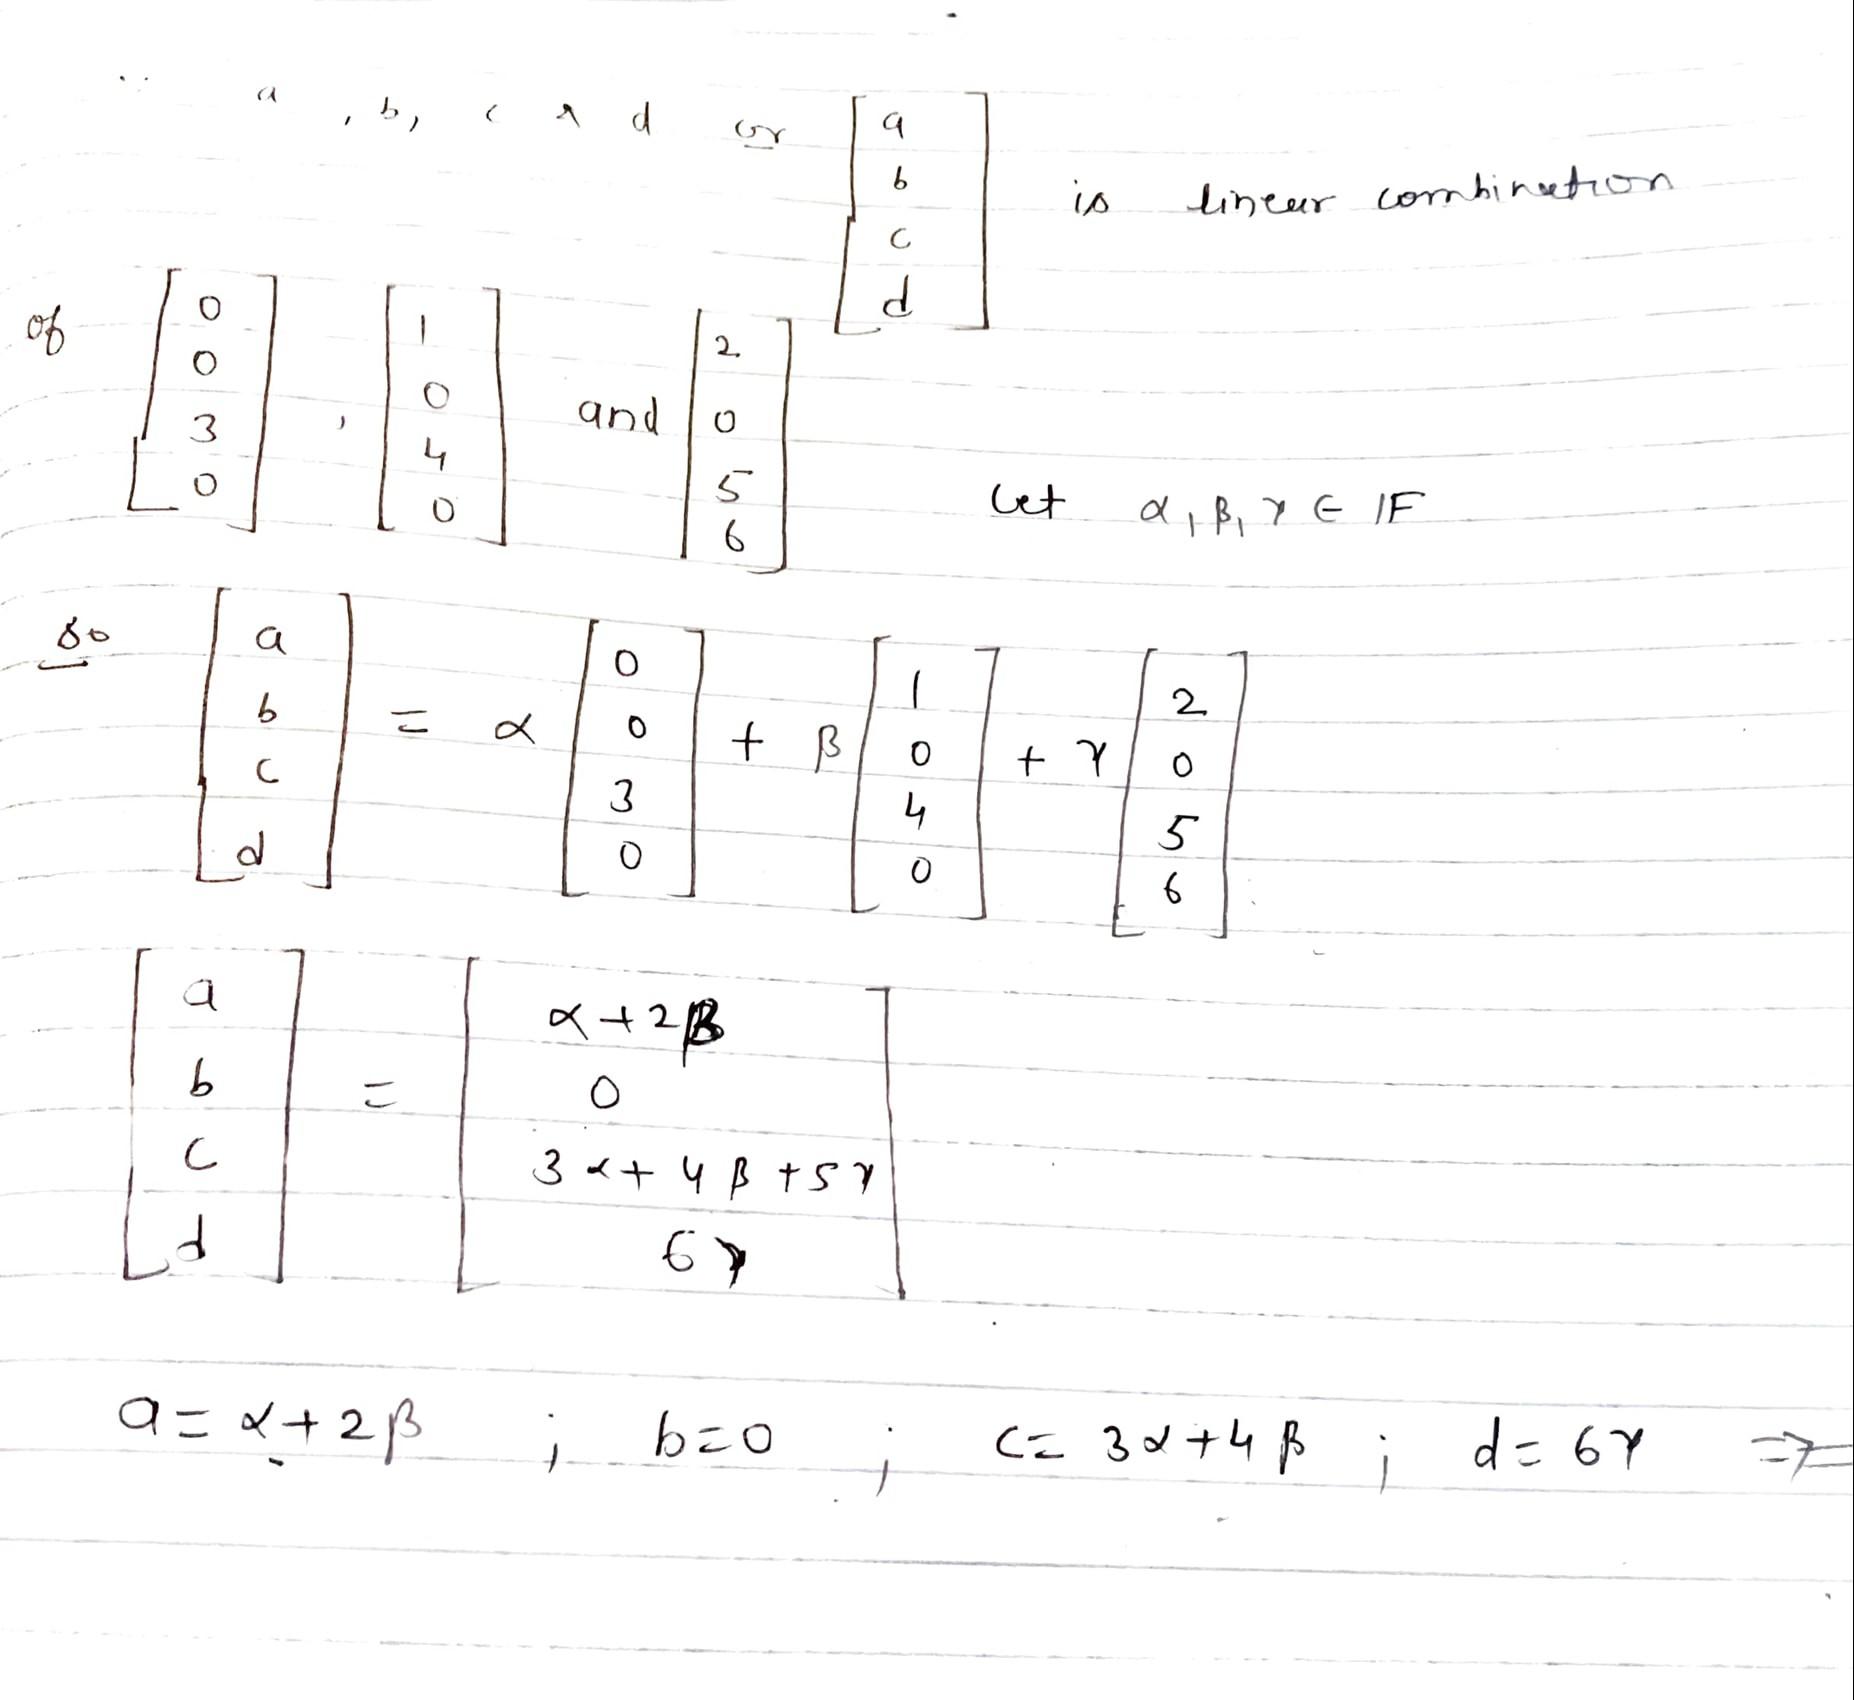 ∵ a, b, c & d or [a b c d] is linear combination
of [0 0 3 0], [1 0 4 0] and [2 0 5 6] Let α, β, γ ∈ IF
So [a b c d] = α [0 0 3 0] + β [1 0 4 0] + γ [2 0 5 6]
[a b c d] = [α+2β 0 3α+4β+5γ 6γ]
a = α+2β ; b=0 ; c= 3α+4β ; d= 6γ =>